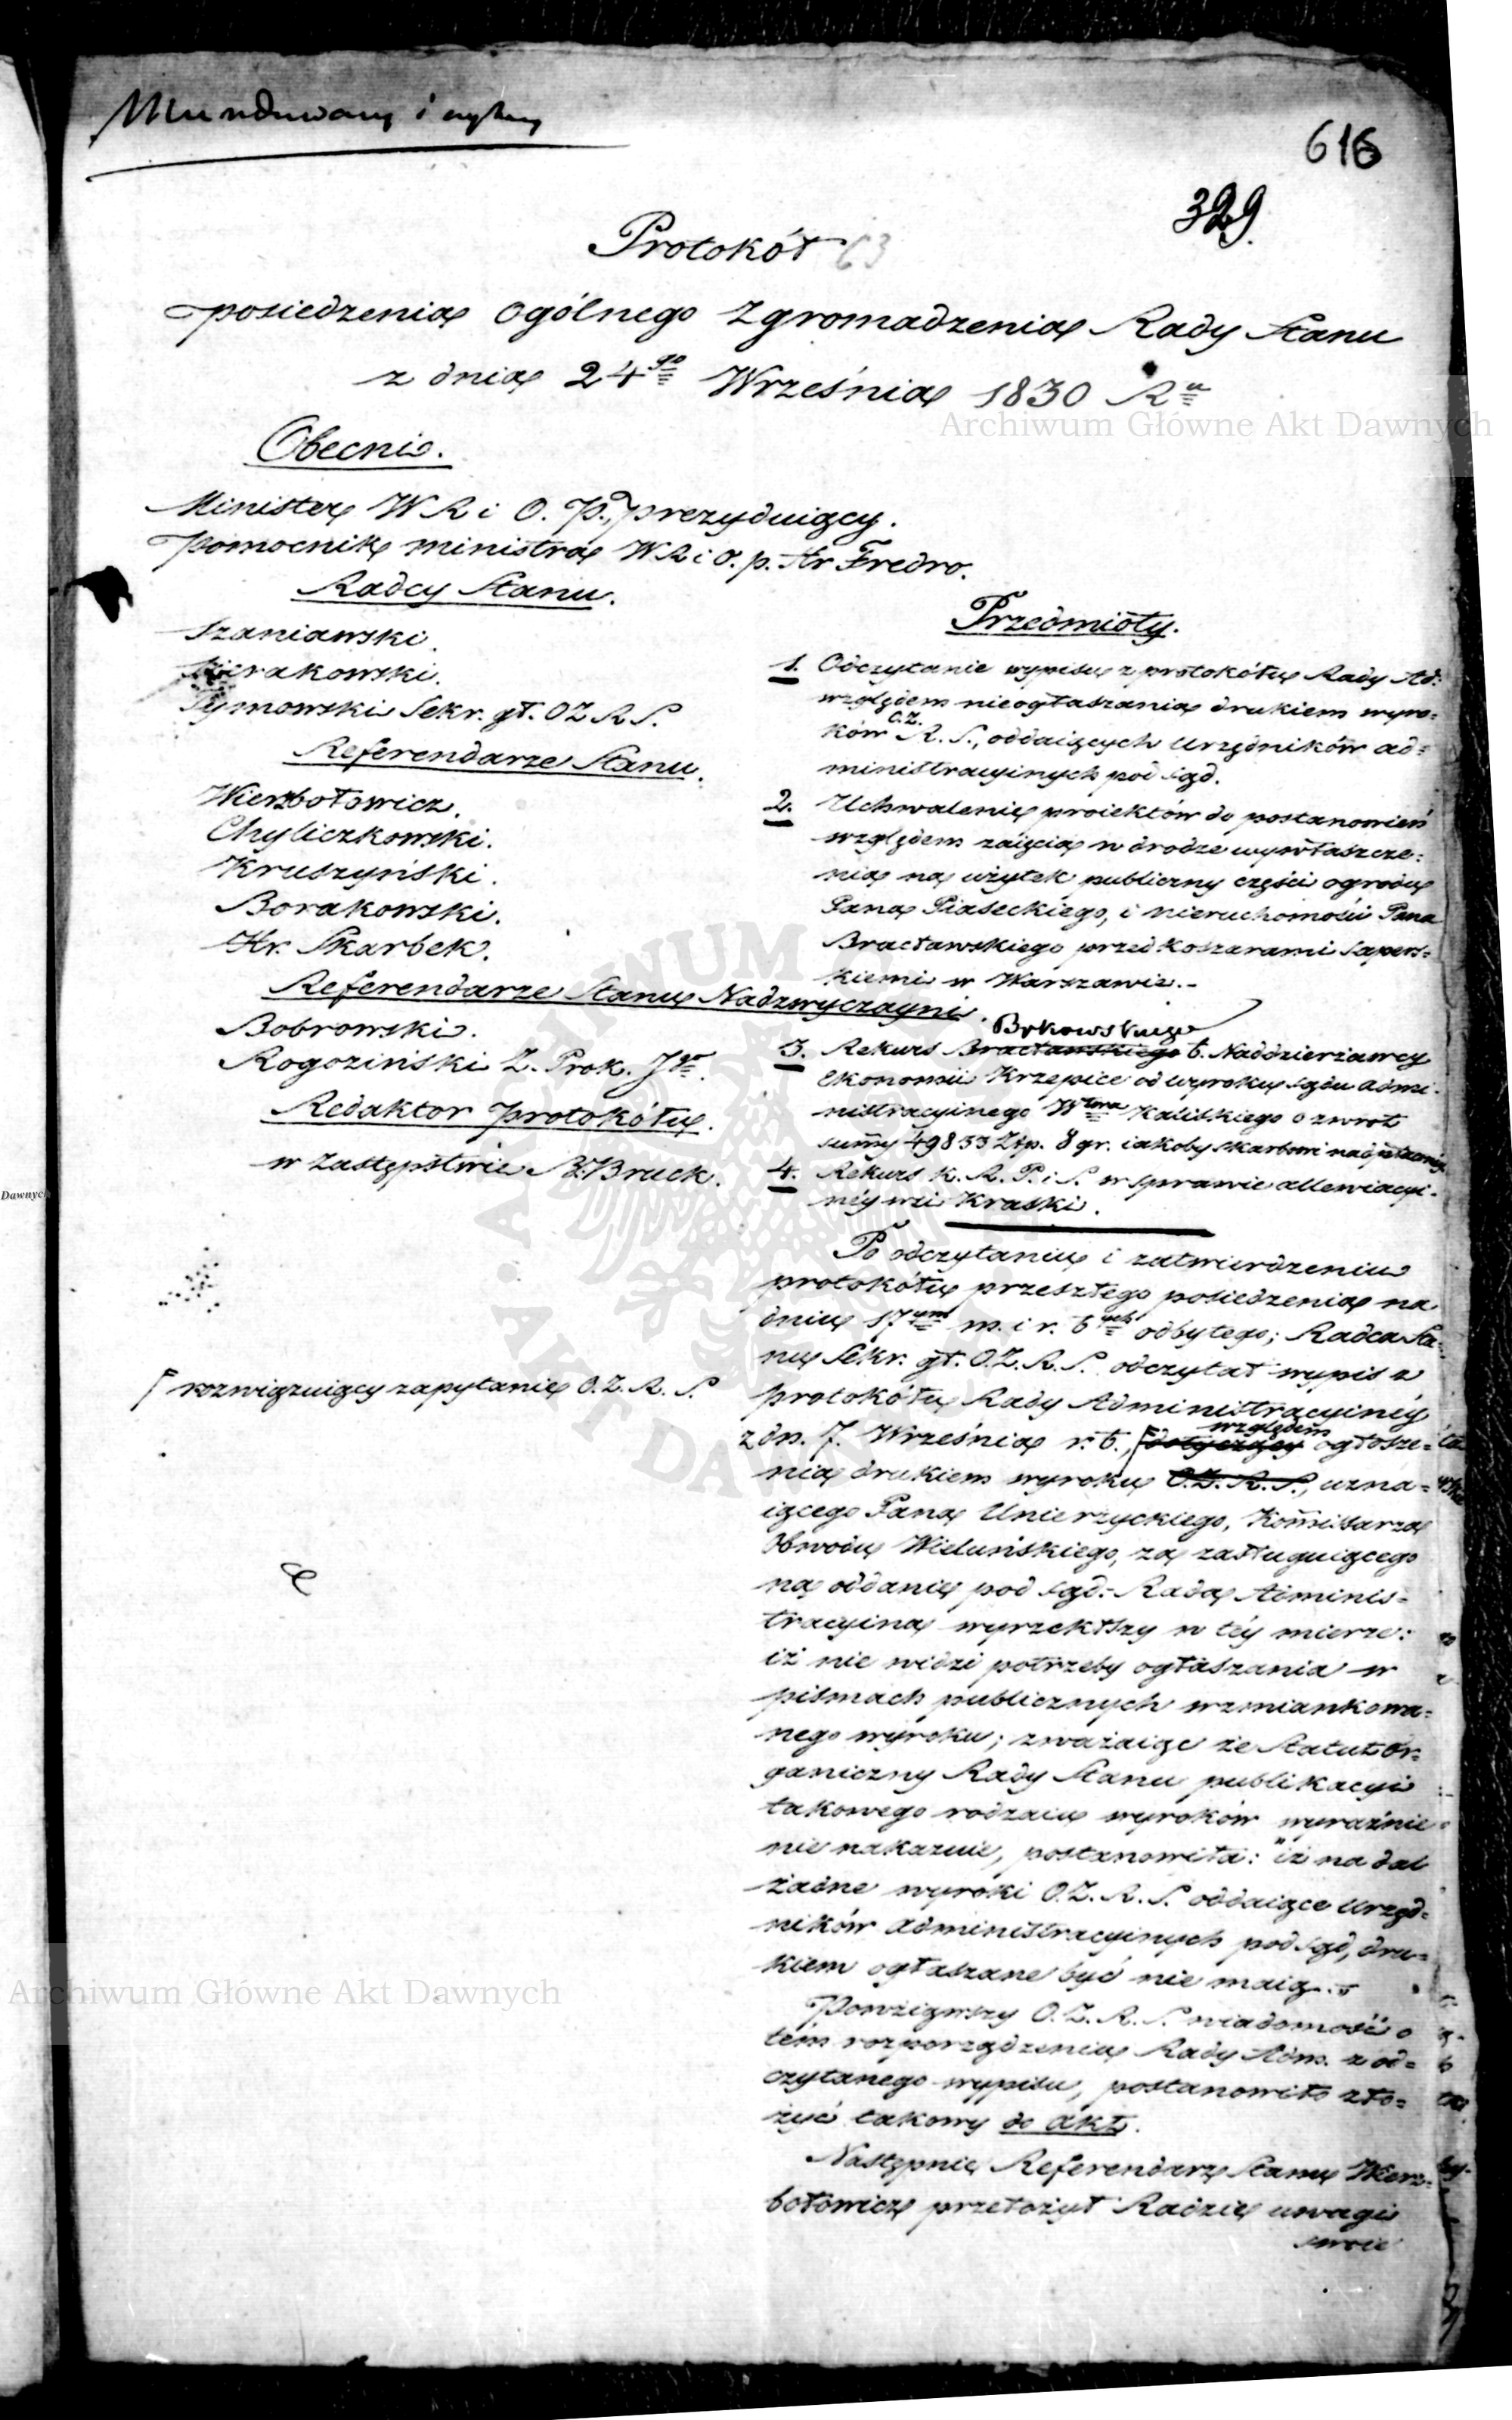 Mundowany i
616
329.
Protokół 63
posiedzenia Ogólnego Zgromadzenia Rady Stanu
z dnia 24go Września 1830 Ru
Archiwum Główne Akt Dawnych
Obecni.
Minister W R i O. P., prezyduiący.
Pomocnik ministra W R i O. p. Hr Fredro.
Radcy Stanu.
Szaniawski.
Sierakowski.
Tymowski Sekr. gł. O Z R S.
Referendarze Stanu.
Wierzbołowicz.
Chyliczkowski.
Kruszyński.
Borakowski.
Hr. Skarbek.
Referendarze Stanu Nadzwyczayni.
Bobrowski.
Rogoziński Z. Prok. Jgo.
Redaktor protokółu.
w zastępstwie Z. Bruck.
Przedmioty.
1. Odczytanie wypisu z protokółu Rady Ad:
względem nieogłaszania drukiem wyro=
ków O.Z. R. S., oddaiących Urzędników ad=
ministracyinych pod sąd.
2. Uchwalenie proiektów do postanowień
względem zaięcia w drodze wywłaszcze=
nia na użytek publiczny części ogrodu
Pana Piaseckiego, i nieruchomości Pana
Bracławskiego przed koszarami Sapers=
kiemi w Warszawie.-
3. Rekurs Bracławskiego b. Naddzierżawcy
ekonomii Krzepice od wyroku sądu admi-
nistracyinego Wtwa Kaliskiego o zwrot
summy 49833 Złp. 8 gr. iakoby Skarbowi
4. Rekurs K. R. P. i S. w sprawie allewiacyi-
néy wsi Kraski.
Po odczytaniu i zatwierdzeniu
protokółu przeszłego posiedzenia na
dniu 17ym m. i r. b. odbytego; Radca Sta=
nu Sekr. gł. O.Z.R.S. odczytał wypis z
protokółu Rady Administracyinéy
z dn. 7. Września r. b., dotyczący względem ogłosze=
nia drukiem wyroku O.Z.R.S., uzna=
iącego Pana Unierzyckiego, Kommissarza
Obwodu Wieluńskiego, za zasługuiącego
na oddanie pod sąd.- Rada Adminis=
tracyina wyrzekłszy w téy mierze:
iż nie widzi potrzeby ogłaszania w
pismach publicznych wzmiankowa=
nego wyroku; zważaiąc że Statut or=
ganiczny Rady Stanu publikacyi
takowego rodzaiu wyroków wyraźnie
nie nakazuie, postanowiła: "iż na dal
żadne wyroki O.Z.R.S. oddaiące Urzęd=
ników administracyinych pod sąd, dru=
kiem ogłaszane być nie maią."
Powziąwszy O.Z.R.S. wiadomość o
tém rozporządzeniu Rady Adm. z od=
czytanego wypisu, postanowiło zło=
żyć takowy do akt.
Następnie Referendarz Stanu Wierz=
bołowicz przełożył Radzie uwagi
swoie
rozwiązuiący zapytanie O.Z.R.S.
Archiwum Główne Akt Dawnych
ARCHIWUM
AKT DAWNYCH
Dawnych